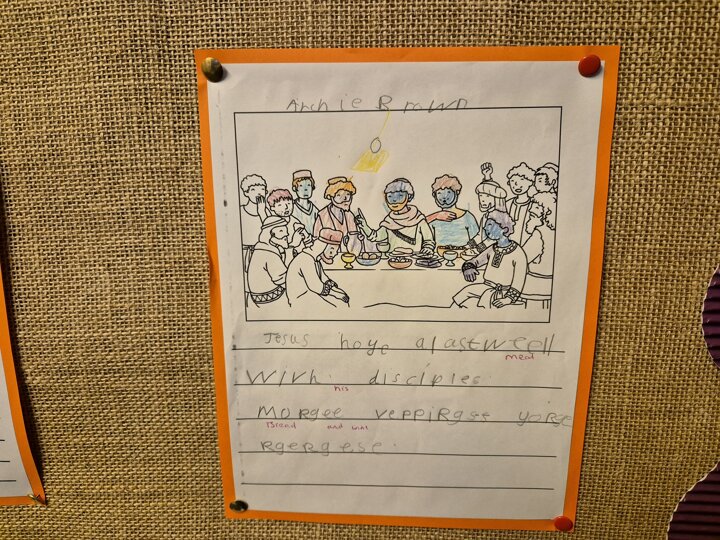 Archie Brown
Jesus hoye a lastwell
meal
Wivh his disciples.
Morgee veppirgse yorge
Bread and wine
rgergese.